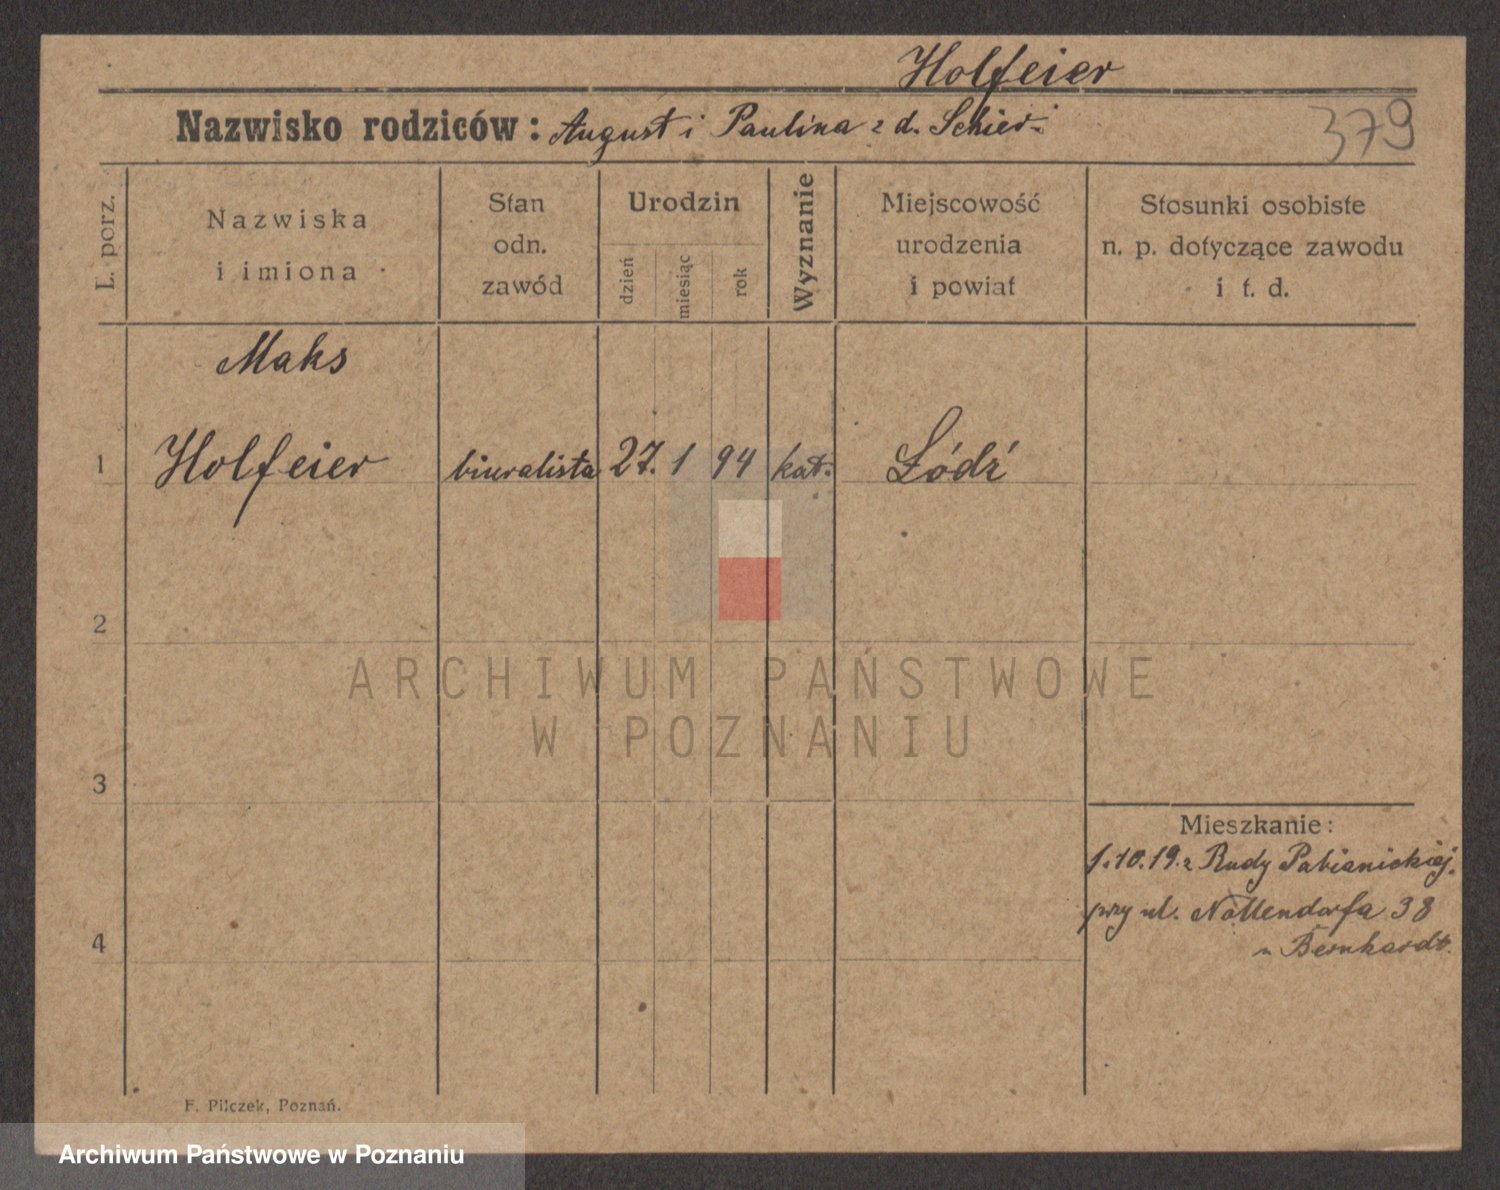 Holfeier
Nazwisko rodziców: August i Paulina z d. Schier
379
L. porz.
Nazwiska
i imiona
Stan
odn.
zawód
Urodzin
dzień
miesiąc
rok
Wyznanie
Miejscowość
urodzenia
i powiat
Stosunki osobiste
n. p. dotyczące zawodu
i t. d.
Maks
1 Holfeier biuralista 27. 1 94 kat. Łódź
2
3
4
Mieszkanie:
1.10.19. z Rudy Pabianickiej.
przy ul. Nollendorfa 38
u Bernhardt.
F. Pilczek, Poznań.
ARCHIWUM PAŃSTWOWE
W POZNANIU
Archiwum Państwowe w Poznaniu